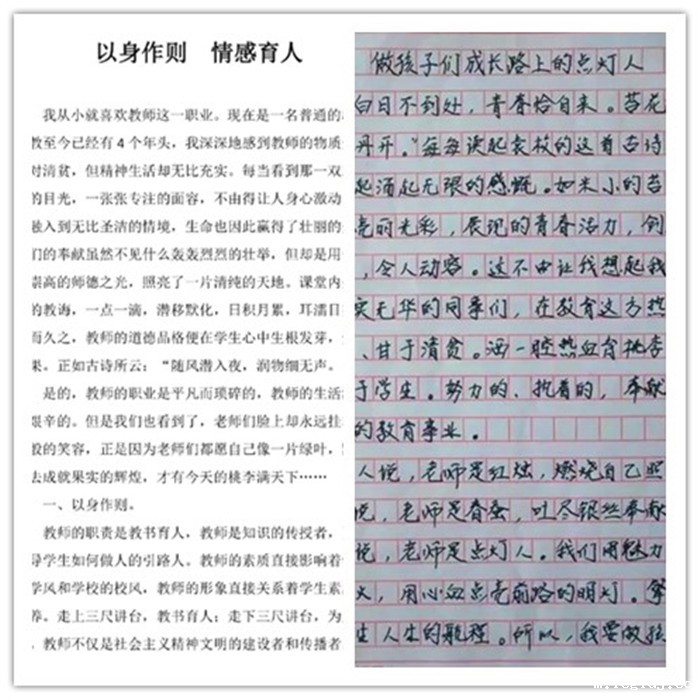 以身作则 情感育人
我从小就喜欢教师这一职业。现在是一名普通的
教至今已经有4个年头,我深深地感到教师的物质
对清贫,但精神生活却无比充实。每当看到那一双
的目光,一张张专注的面容,不由得让人身心激动
融入到无比圣洁的情境,生命也因此赢得了壮丽的
们的奉献虽然不见什么轰轰烈烈的壮举,但却是用
崇高的师德之光,照亮了一片清纯的天地。课堂内
的教诲,一点一滴,潜移默化,日积月累,耳濡目
而久之,教师的道德品格便在学生心中生根发芽,
果。正如古诗所云:“随风潜入夜,润物细无声。
是的,教师的职业是平凡而琐碎的,教师的生活
艰辛的。但是我们也看到了,老师们脸上却永远挂
般的笑容,正是因为老师们都愿自己像一片绿叶,
去成就果实的辉煌,才有今天的桃李满天下……
一、以身作则。
教师的职责是教书育人,教师是知识的传授者,
导学生如何做人的引路人。教师的素质直接影响着
学风和学校的校风,教师的形象直接关系着学生素
养。走上三尺讲台,教书育人;走下三尺讲台,为
。教师不仅是社会主义精神文明的建设者和传播者
做孩子们成长路上的点灯人
白日不到处,青春恰自来。苔花
丹开。”每每读起袁枚的这首古诗
起涌起无限的感慨。如米小的苔
亮丽光彩,展现的青春活力,创
,令人动容。这不由让我想起我
实无华的同事们,在教育这方热
、甘于清贫。洒一腔热血育桃李
于学生。努力的、执着的,奉献
的教育事业。
人说,老师是红烛,燃烧自己照
说,老师是春蚕,吐尽银丝奉献
说,老师是点灯人。我们用魅力
火,用心血点亮前路的明灯。擎
生人生的航程。所以,我要做孩